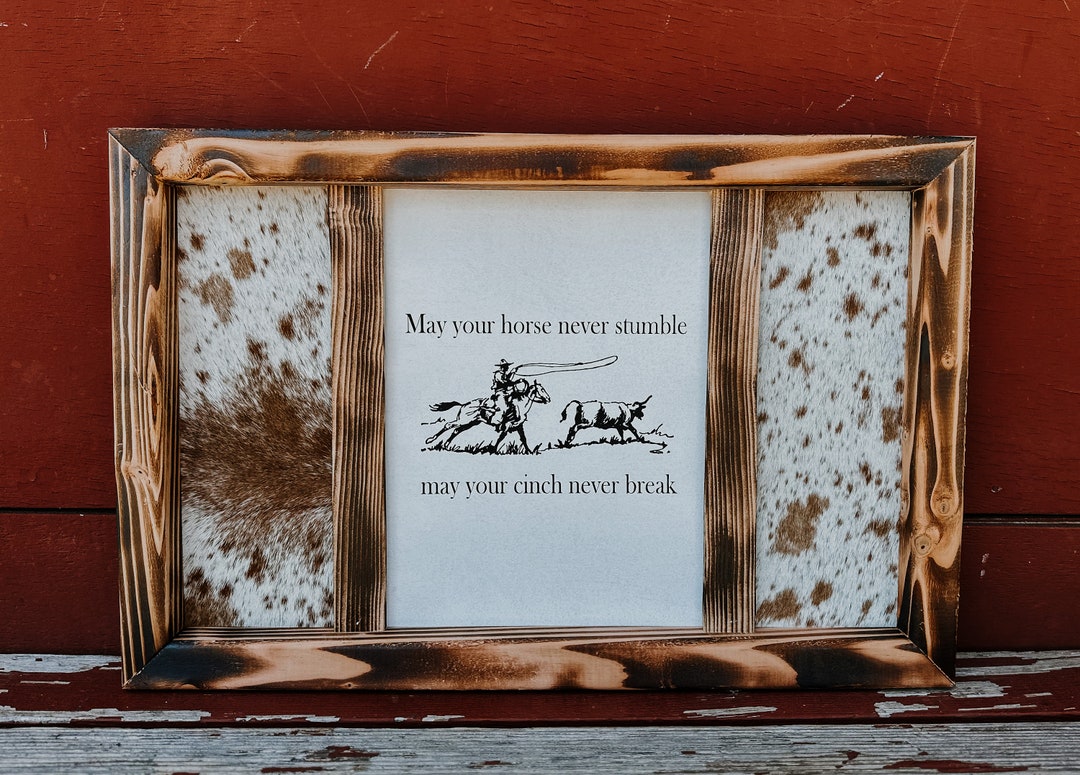 May your horse never stumble
may your cinch never break